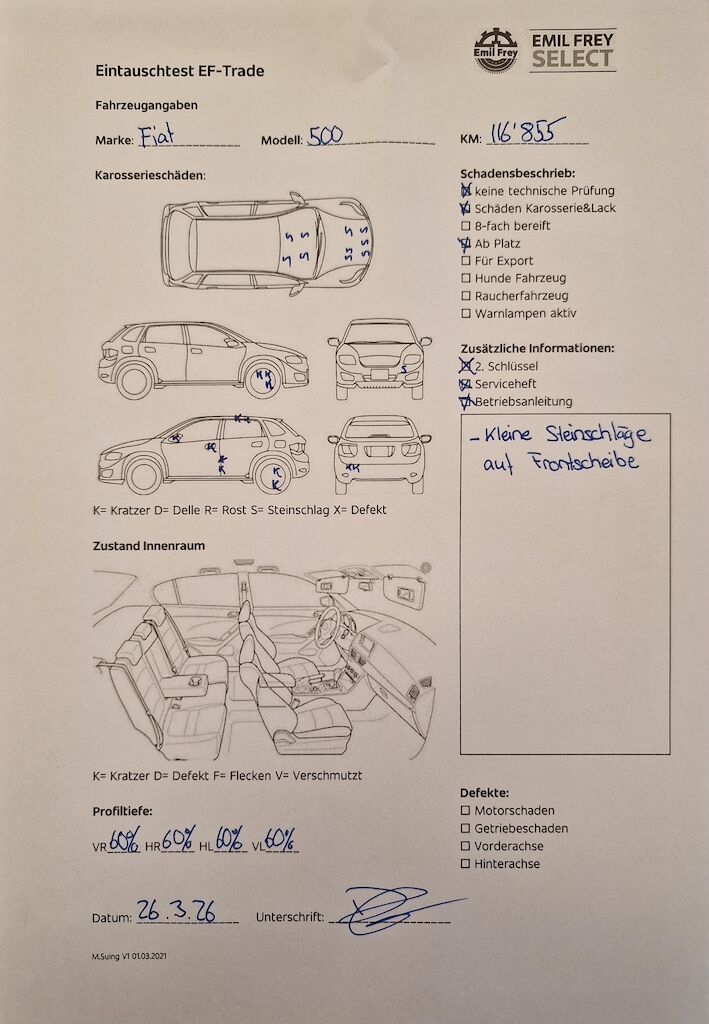 Emil Frey
EMIL FREY
SELECT
Eintauschtest EF-Trade
Fahrzeugangaben
Marke: Fiat Modell: 500 KM: 116'855
Karosserieschäden:
S S S S
S S S S S S
K K
K
S
K K
K
K
K
K
K
K
K K
K= Kratzer D= Delle R= Rost S= Steinschlag X= Defekt
Schadensbeschrieb:
keine technische Prüfung
Schäden Karosserie&Lack
8-fach bereift
Ab Platz
Für Export
Hunde Fahrzeug
Raucherfahrzeug
Warnlampen aktiv
Zusätzliche Informationen:
2. Schlüssel
Serviceheft
Betriebsanleitung
- Kleine Steinschläge
auf Frontscheibe
Zustand Innenraum
K= Kratzer D= Defekt F= Flecken V= Verschmutzt
Profiltiefe:
VR 60% HR 60% HL 60% VL 60%
Defekte:
Motorschaden
Getriebeschaden
Vorderachse
Hinterachse
Datum: 26.3.26 Unterschrift:
M.Suing V1 01.03.2021